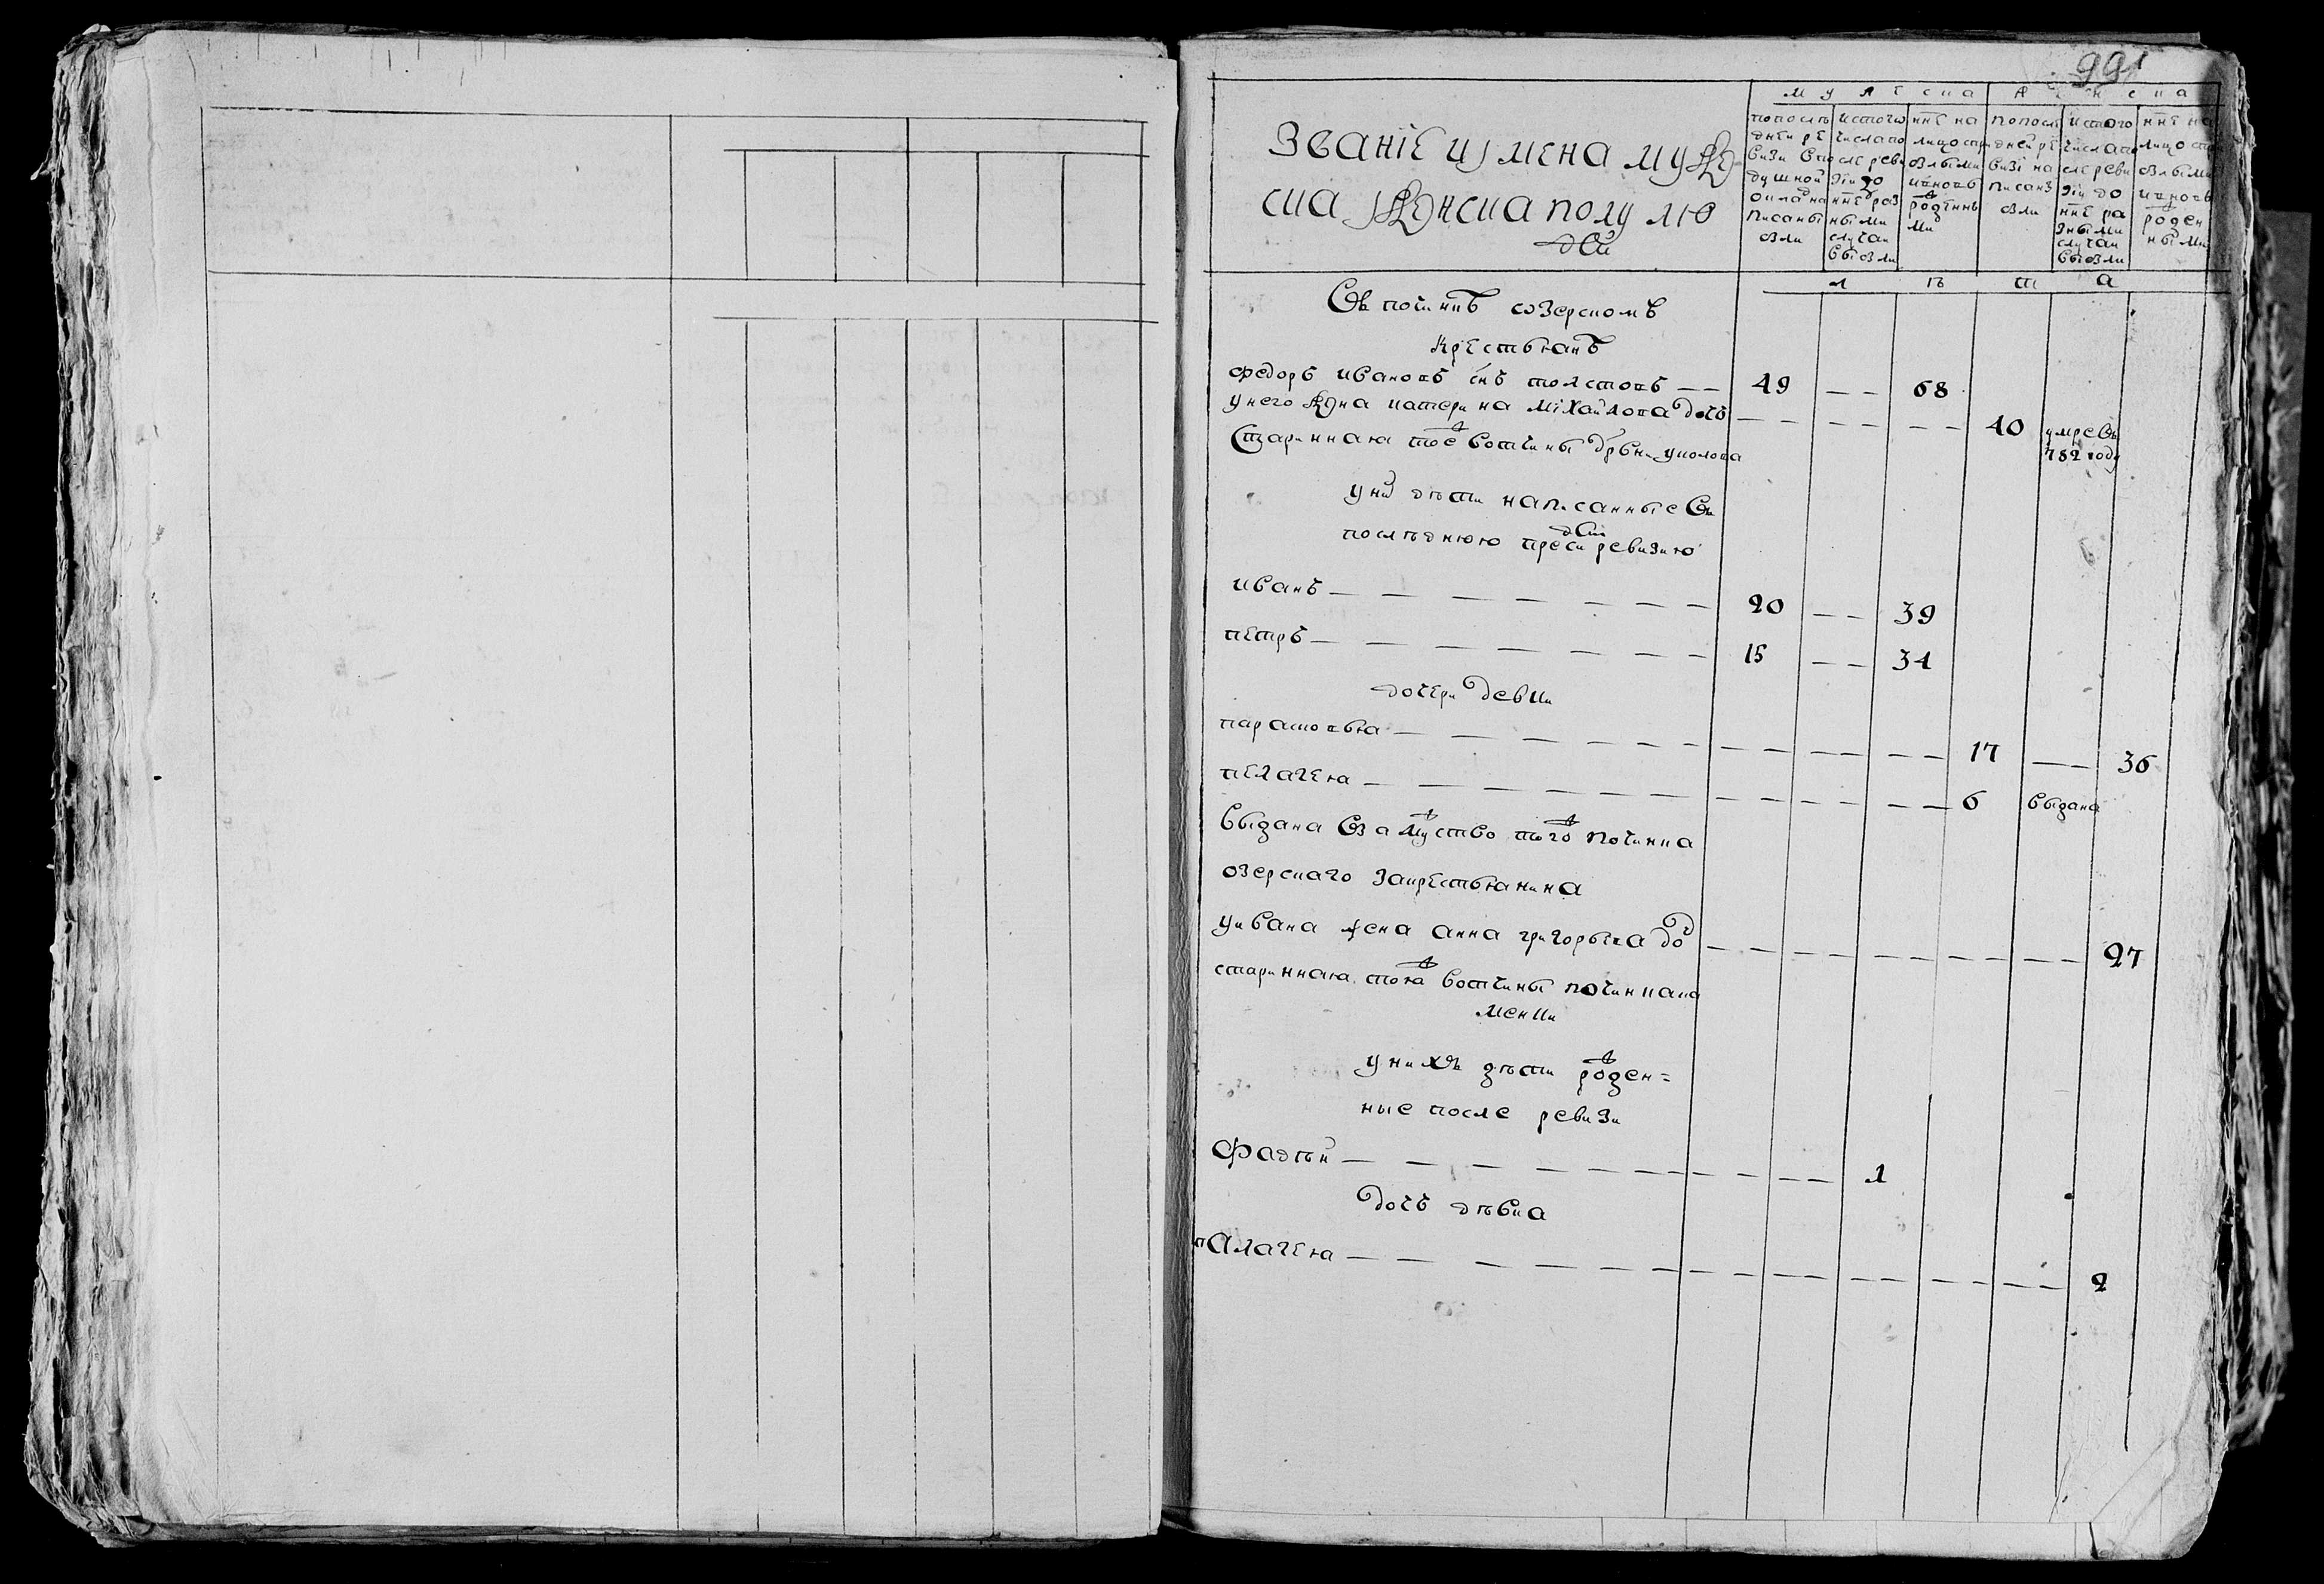 991
Званіе и имена муже
ска и женска полу лю
дей
мужеска
женска
попослѣ
дней ре
визи в по
душной
окладъ на
писаны
ѣзли
истого
числа по
сле реви
зіи до
нне раз
ными
случаи
выбзли
нне на
лицо
съ
прибылыми
и вновь
рожденны
ми
попослѣ
дней ре
визі на
писанз
истого
числа по
сле реви
зіи до
нне ра
зными
случаи
выбзли
нне на
лицо
и вновь
рожден
ными
лѣта
Въ починкѣ озерскомъ
крестьянъ
федоръ ивановъ снъ толстовъ — — 49 — — 68
у него жена катерина міхайлова дочь — — — — — 40 умре въ
782 году
старинная тоѣ вотчины дрвни уполова
у них дѣти написанные въ
последнюю пред сим ревизию
иванъ — — — — — — — 20 — — 39
петръ — — — — — — — 15 — — 34
дочери девки
парасковья — — — — — — — — — — 17 — — 36
пелагея — — — — — — — — — — 6 выдана
выдана в замужство того починка
озерскаго за крестьянина
у ивана жена анна григорьева до — — — — — — — 27
старинная тоя вотчины починка ка
менки
у нихъ дѣти рожден=
ные после ревизи
Фадѣй — — — — — — — — — 1
дочь дѣвка
палагея — — — — — — — — — — — — 2